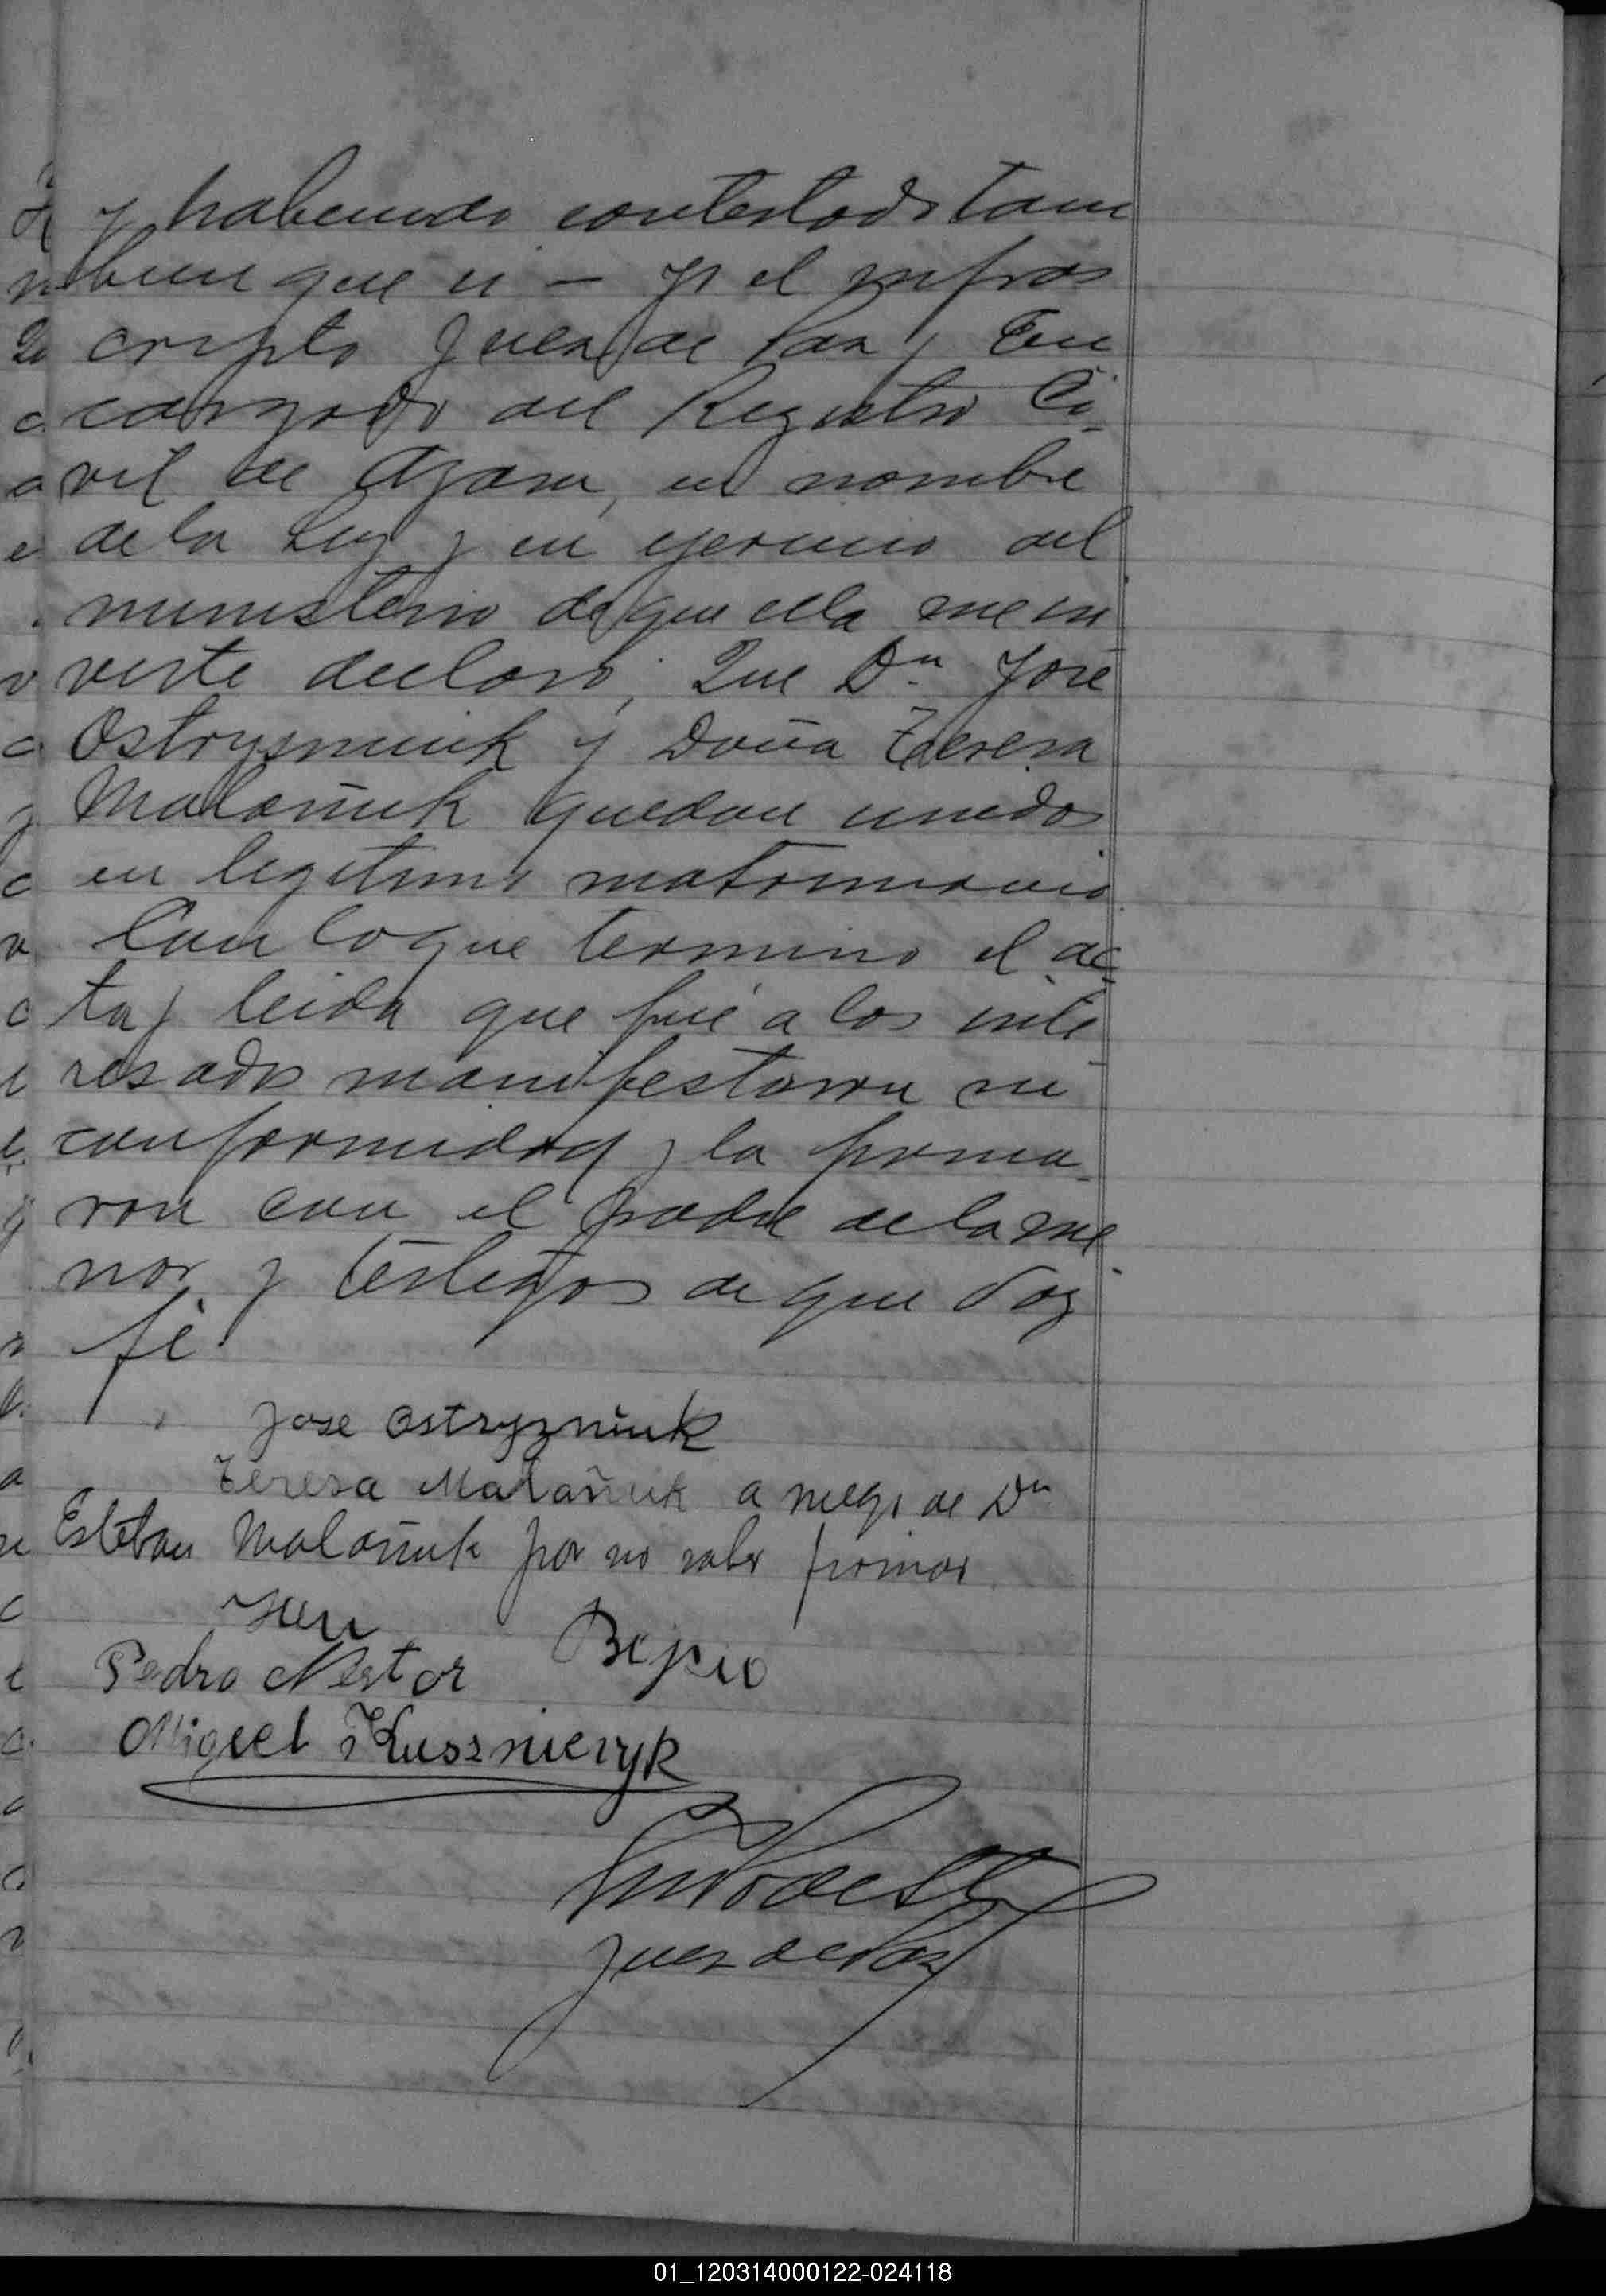 y habiendo contestado tam
bien que si — Yo el infras
cripto Juez de Paz y En
cargado del Registro Ci-
vil de Azara, en nombre
de la Ley y en ejercicio del
ministerio de que ella me in
viste declaro; Que Dn José
Ostrysniuk y Doña Teresa
Malañuk quedan unidos
en legitimo matrimonio
Con lo que termino el ac
ta y leida que fué a los inte
resados manifestaron su
conformidad y la firma-
ron con el padre de la me
nor y testigos de que doy
fé
Jose Ostryzniuk
Teresa Malañuk a ruego de Dn
Esteban Malañuk por no saber firmar
Pedro Nestor
Miguel Kuszniezyk
Juez de Paz
01_120314000122-024118